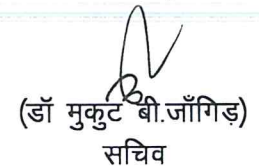 (डॉ मुकुट बी.जाँगिड़)
सचिव